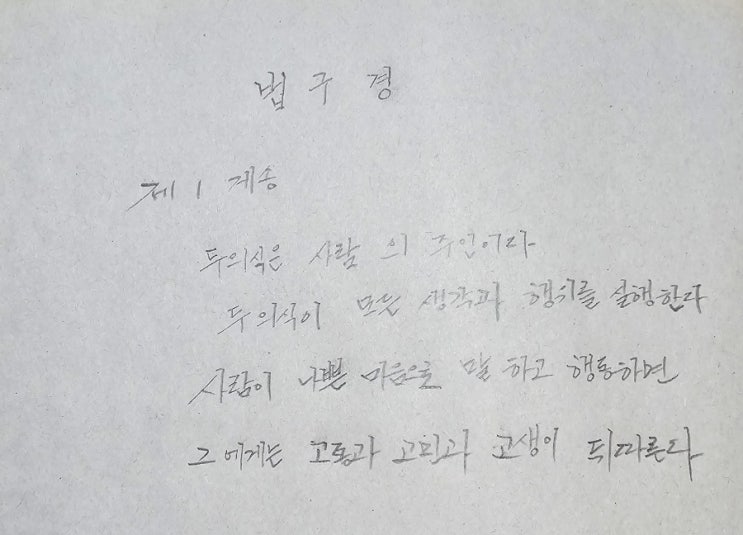 법구경
제 1 게송
두의식은 사람 의 주인이다
두의식이 모든 생각과 행위를 실행한다
사람이 나쁜 마음으로 말 하고 행동하면
그 에게는 고통과 고민과 고생이 뒤따른다